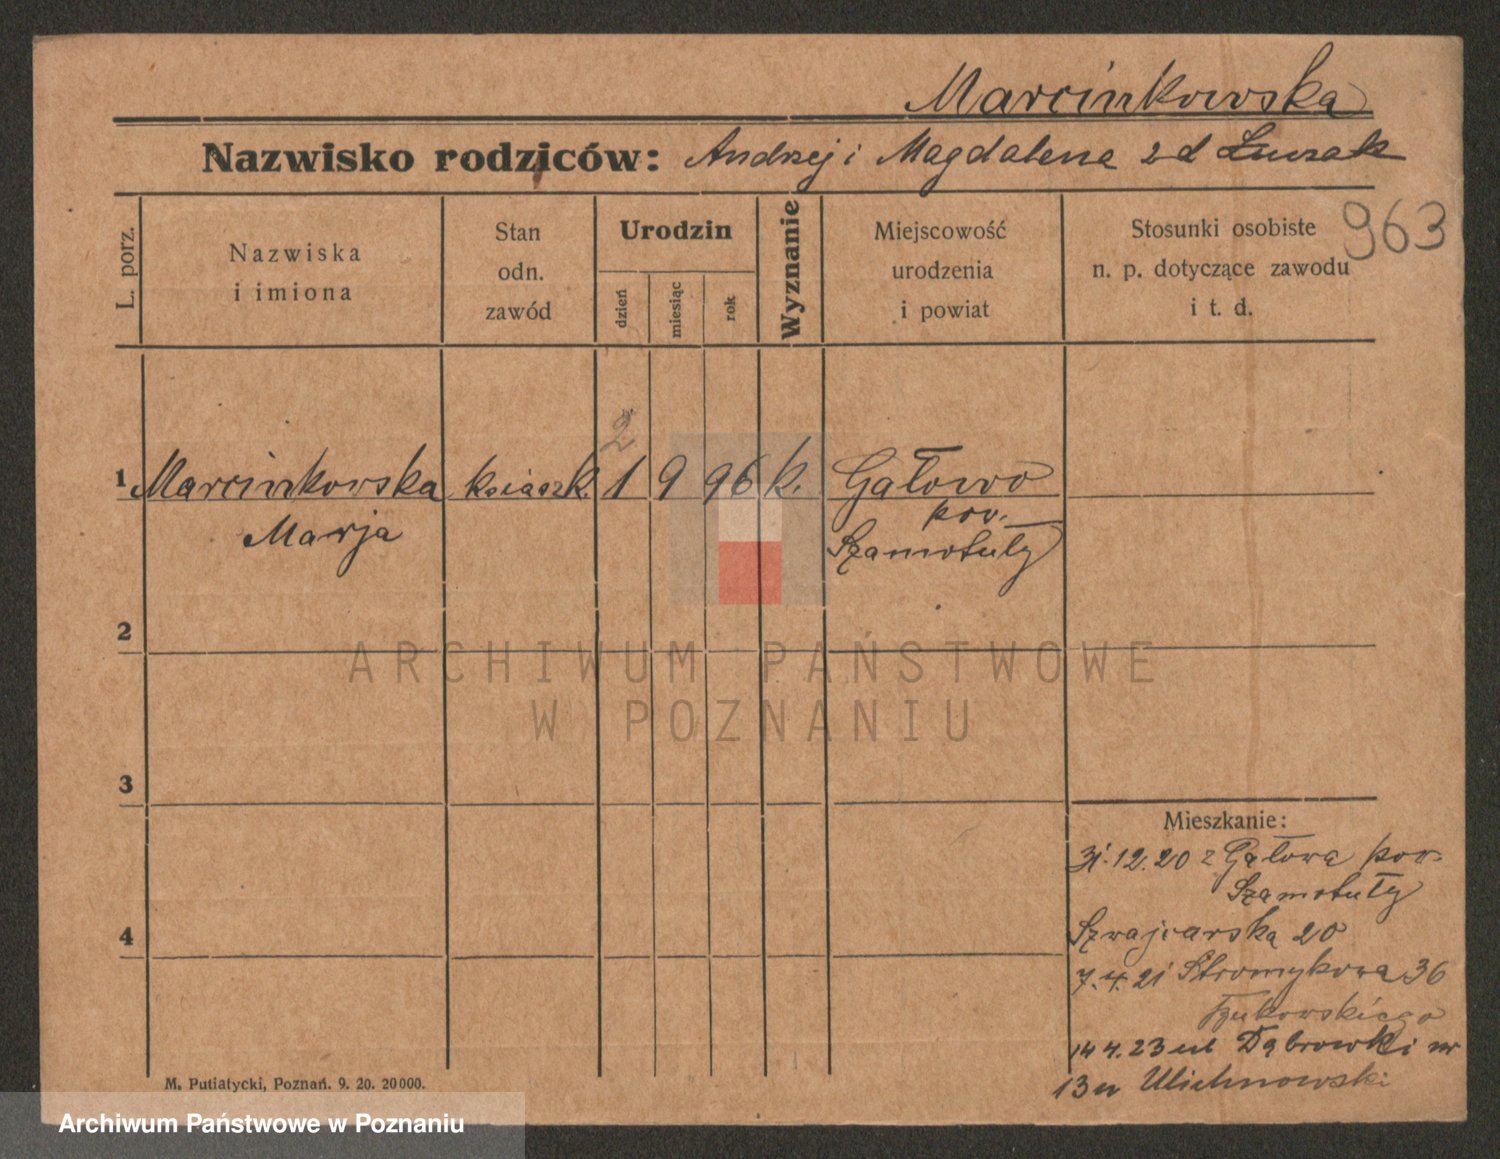 Marcinkowska
Nazwisko rodziców: Andrzej i Magdalena zd
963
L. porz.
Nazwiska
i imiona
Stan
odn.
zawód
Urodzin
dzień
miesiąc
rok
Wyznanie
Miejscowość
urodzenia
i powiat
Stosunki osobiste
n. p. dotyczące zawodu
i t. d.
2
1 Marcinkowska książk. 1 9 96 k. Gałowo
Marja
pow.
Szamotuły
2
3
4
Mieszkanie:
31.12.20 z Gałowa pow.
Szamotuły
Szwajcarska 20
7.4.21 Stromykowa 36
14 4.23 ul Dąbrowki nr
13 u Ulichnowski
M. Putiatycki, Poznań. 9. 20. 20000.
ARCHIWUM PAŃSTWOWE
W POZNANIU
Archiwum Państwowe w Poznaniu